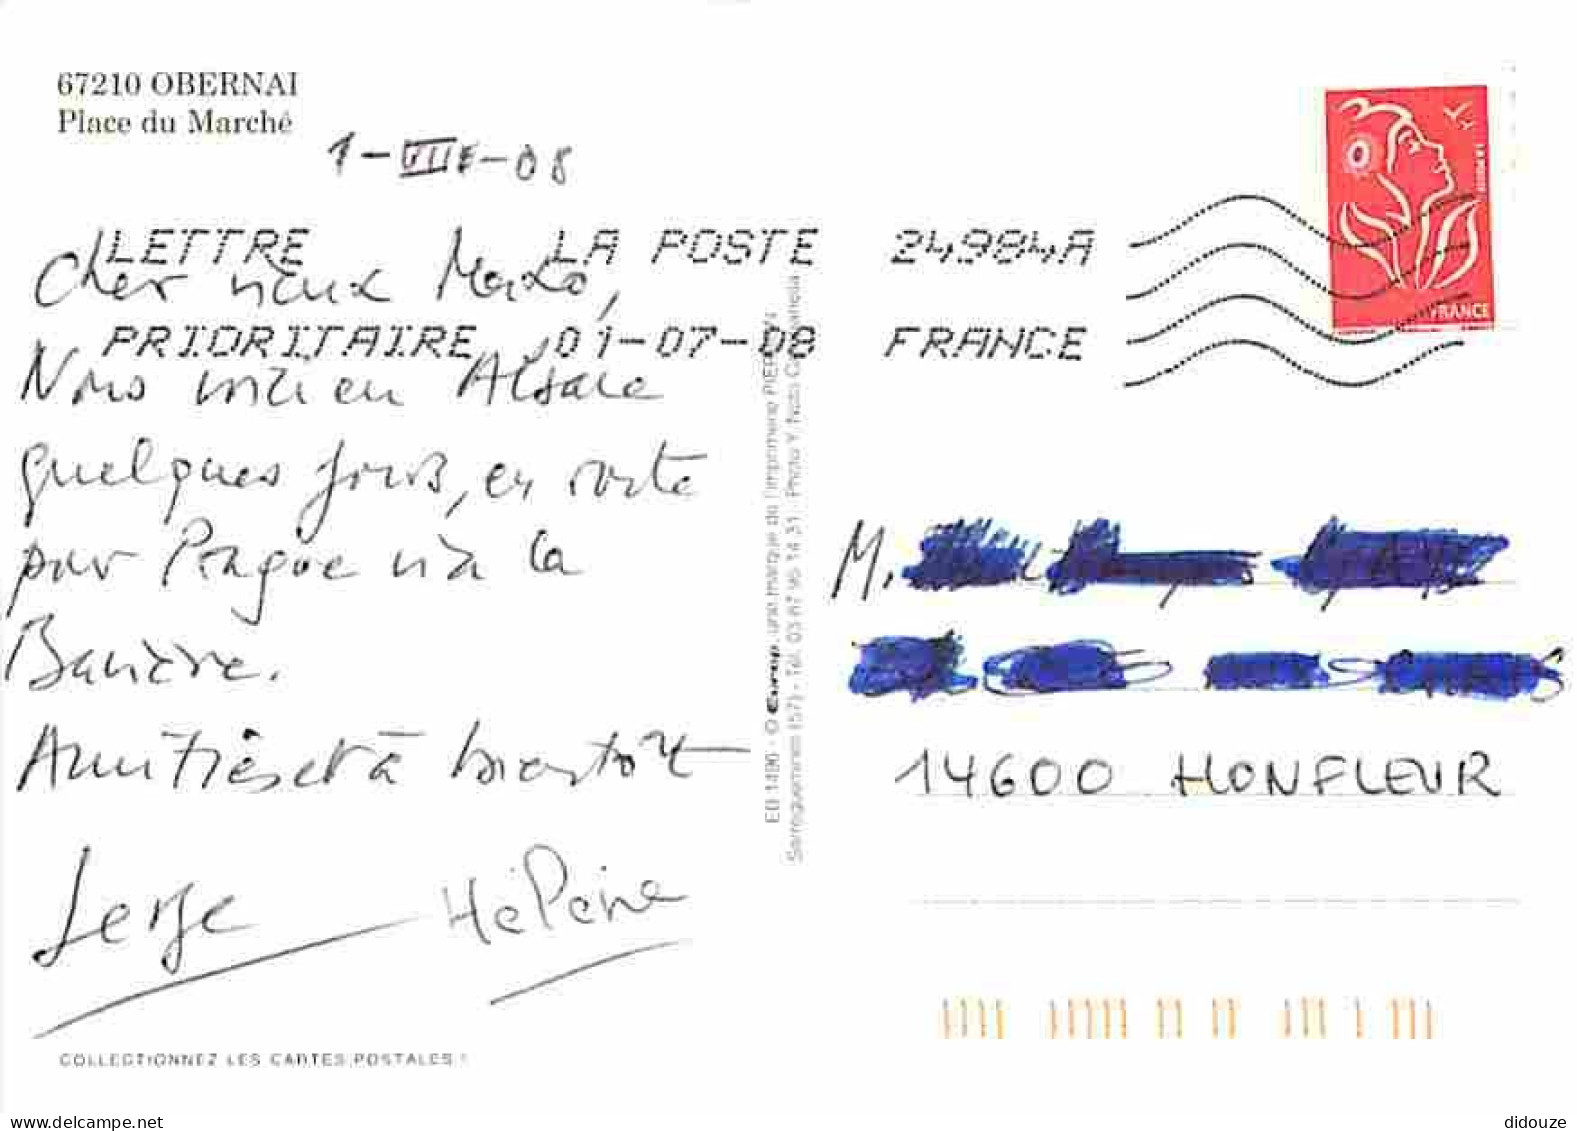 67210 OBERNAI
Place du Marché
1-VII-08
LETTRE LA POSTE 24984A
Cher vieux
PRIORITAIRE 01-07-08 FRANCE
FRANCE
Nous voici en Alsace
quelques jours, en route
pour Prague via la
Bavière.
Amitiés et à bientôt
Serge Hélène
COLLECTIONNEZ LES CARTES POSTALES !
ED 1490 - © Europ, une marque de l'imprimerie
Sarreguemines (57) - Tél. 03 87 95 14 31 - Photo Y. Noto Campanella
M.
14600 HONFLEUR
delcampe.net
didouze